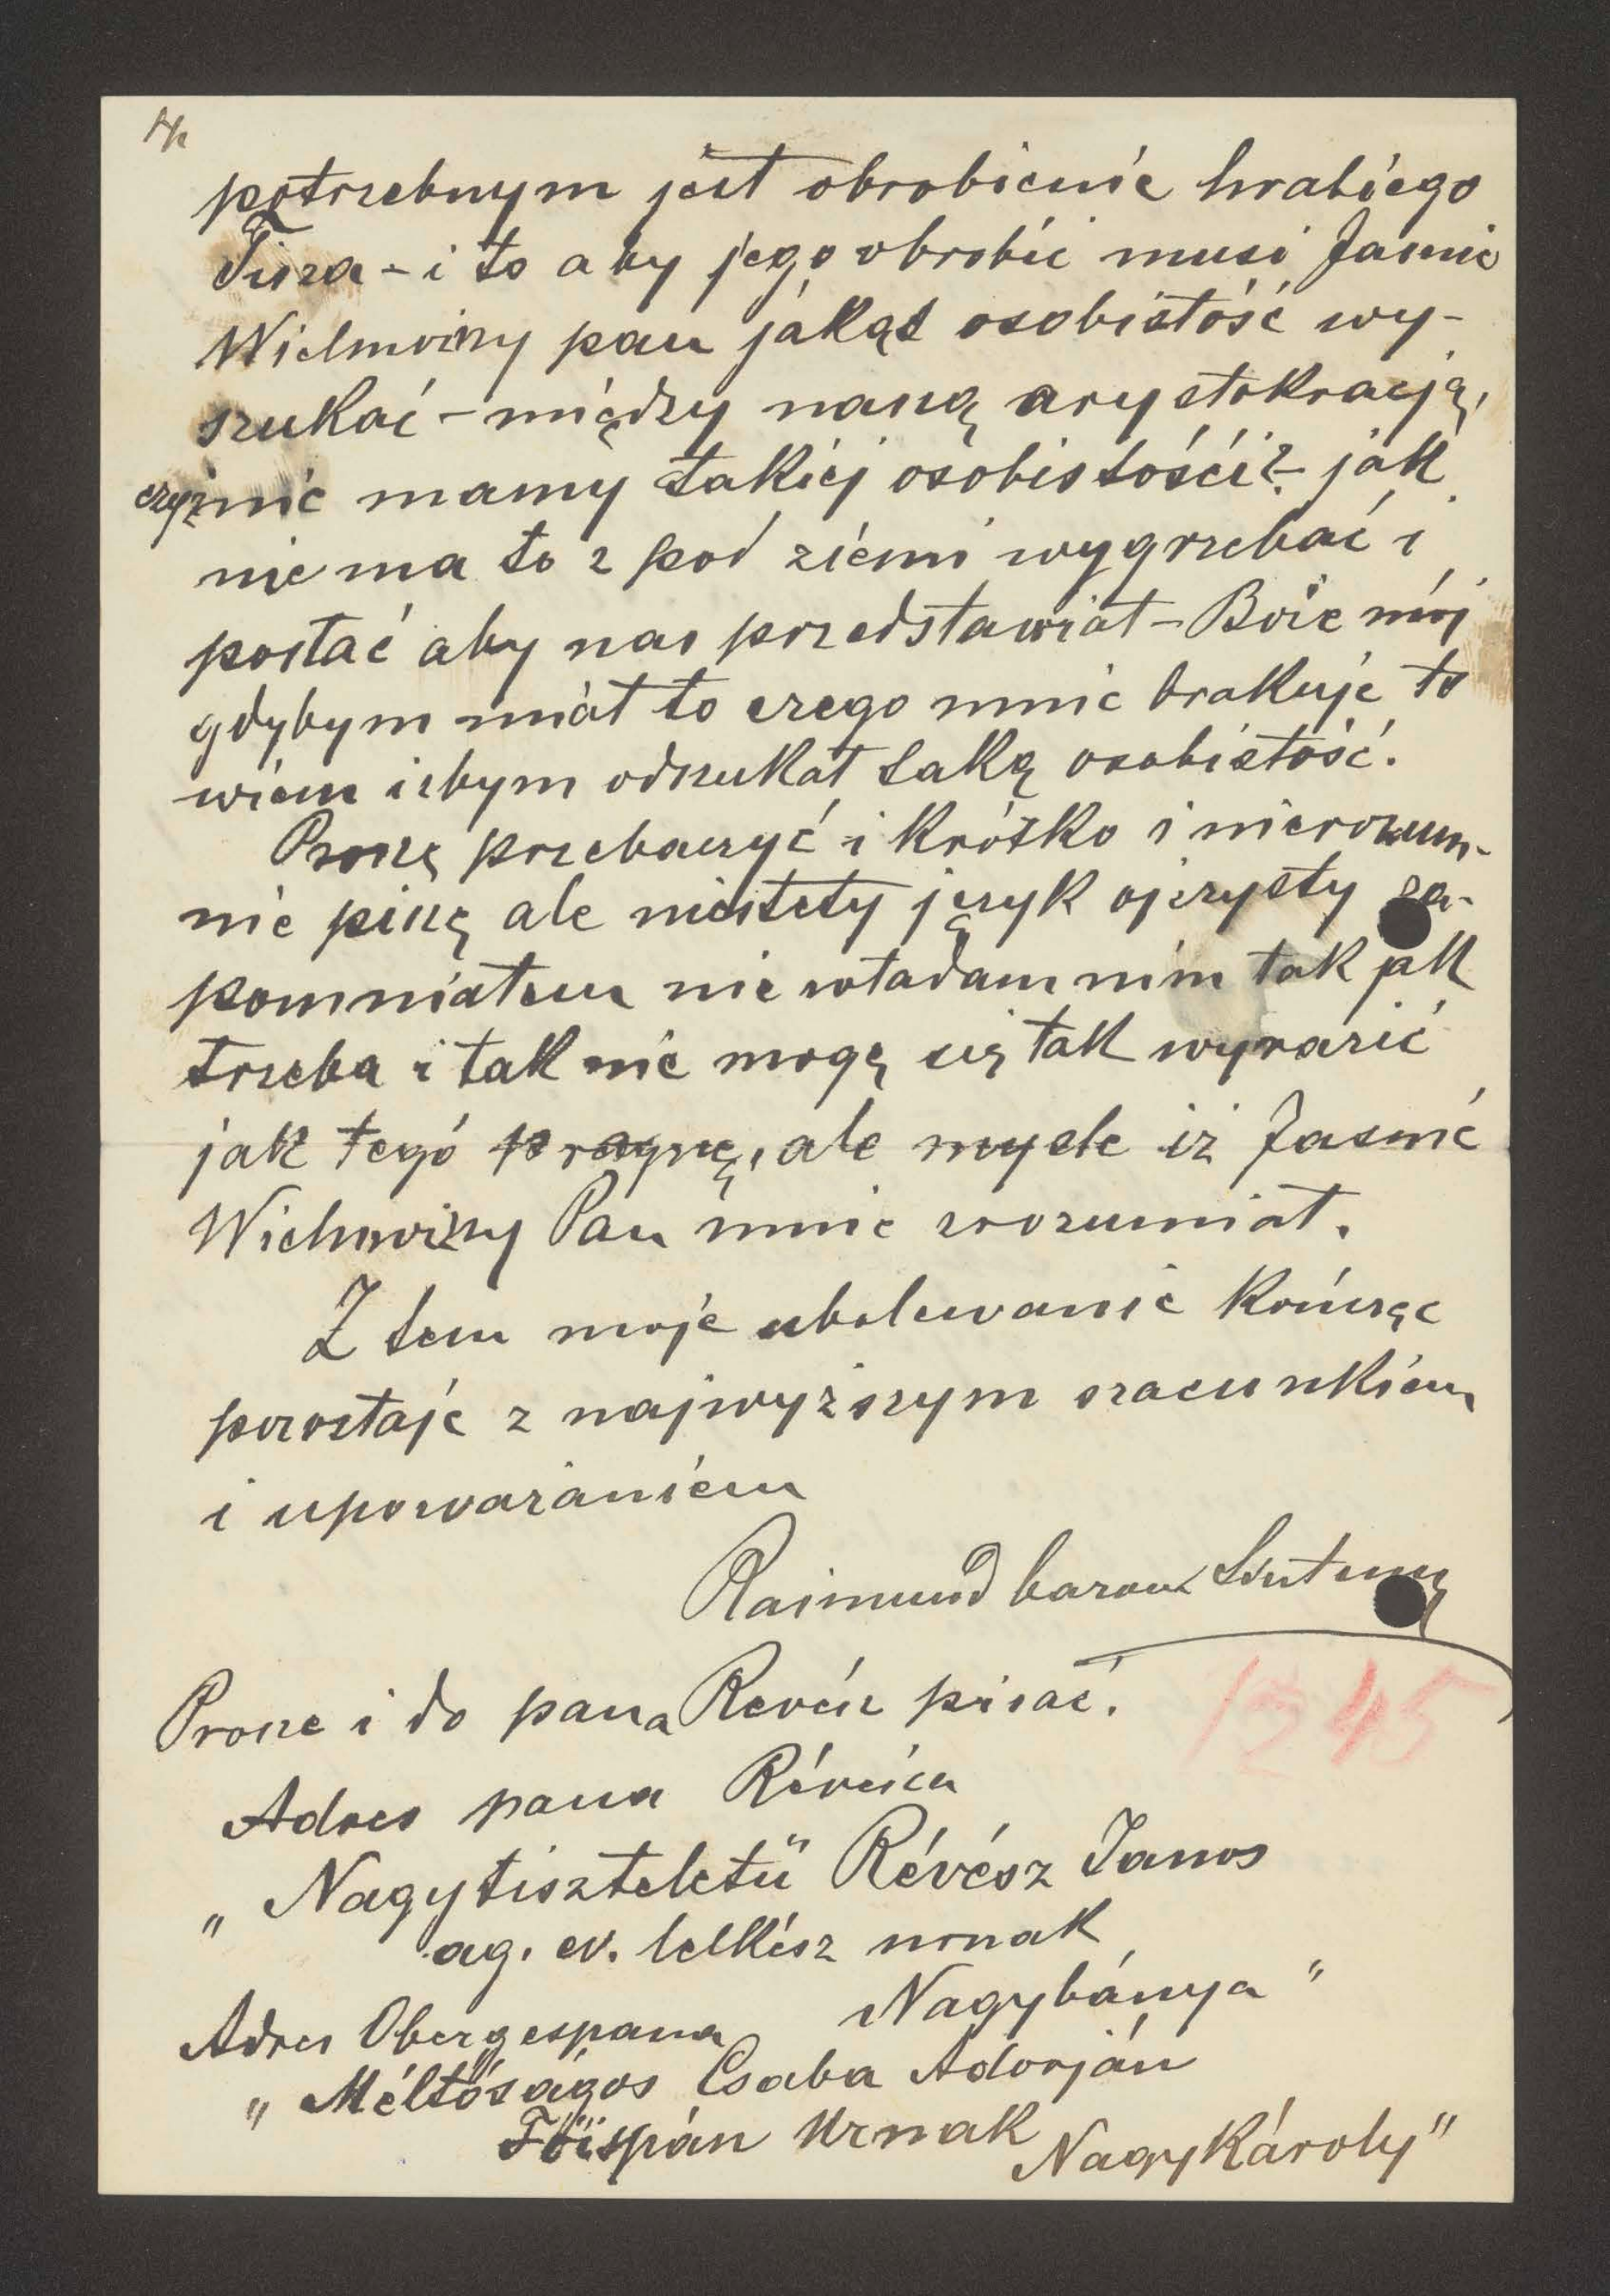 potrzebnym jest obrobienie hrabiego
Tisza - i to aby jego obrobić musi Jaśnie
Wielmożny pan jakąś osobistość wy-
szukać - między naszą arystokracją,
czyż nie mamy takiej osobistości? - jak
nie ma to z pod ziemi wygrzebać i
postać aby nas przedstawiał - Boże mój
gdybym miał to czego mnie brakuje to
wiem iżbym odszukał taką osobistość.
Proszę przebaczyć i krótko i nierozum-
nie piszę ale niestety język ojczysty za-
pomniałem nie władam nim tak jak
trzeba i tak nie mogę się tak wyrazić
jak tego pragnę, ale mysle iż Jasnie
Wielmożny Pan mnie zrozumiał.
Z tem moje ubolewanie kończąc
pozostaje z najwyższym szacunkiem
i upoważaniem
Raimund baron
Prosze i do pana Revész pisać.
1345
Adres pana Révésza
„Nagytiszteletü Révész Janos
ag. ev. lelkész urnak
Nagybánya"
Adres Obergespana
„Méltóságos Csaba Adorján
Föispán Urnak
NagyKároly"